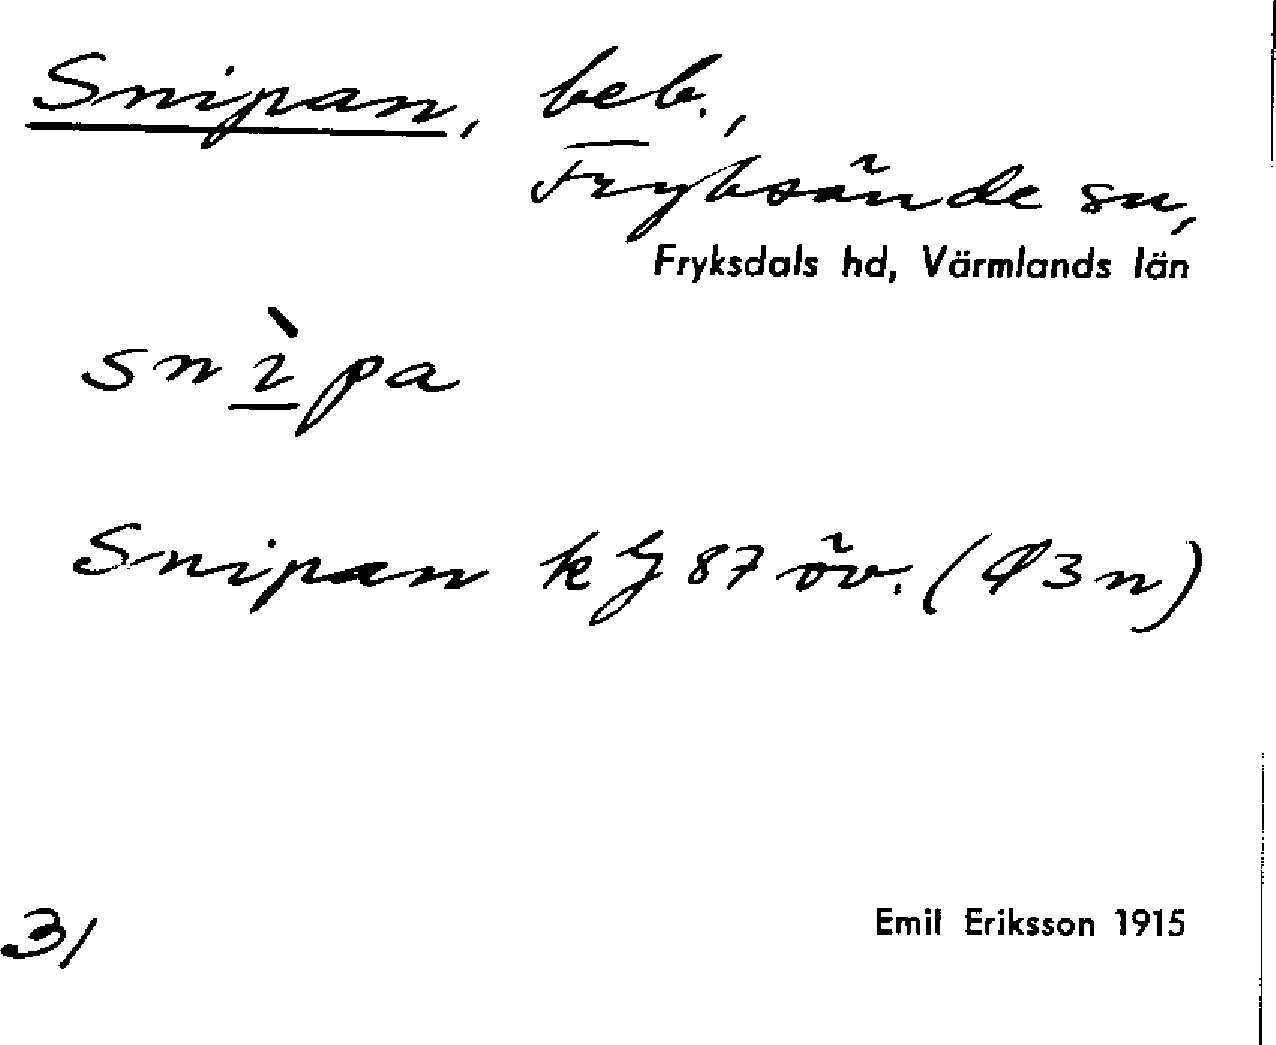 Snipan, beb.,
Fryksände sn,
Fryksdals hd, Värmlands län
snìpa
Snipan kG 87 öv. (d3n)
Emil Eriksson 1915
31